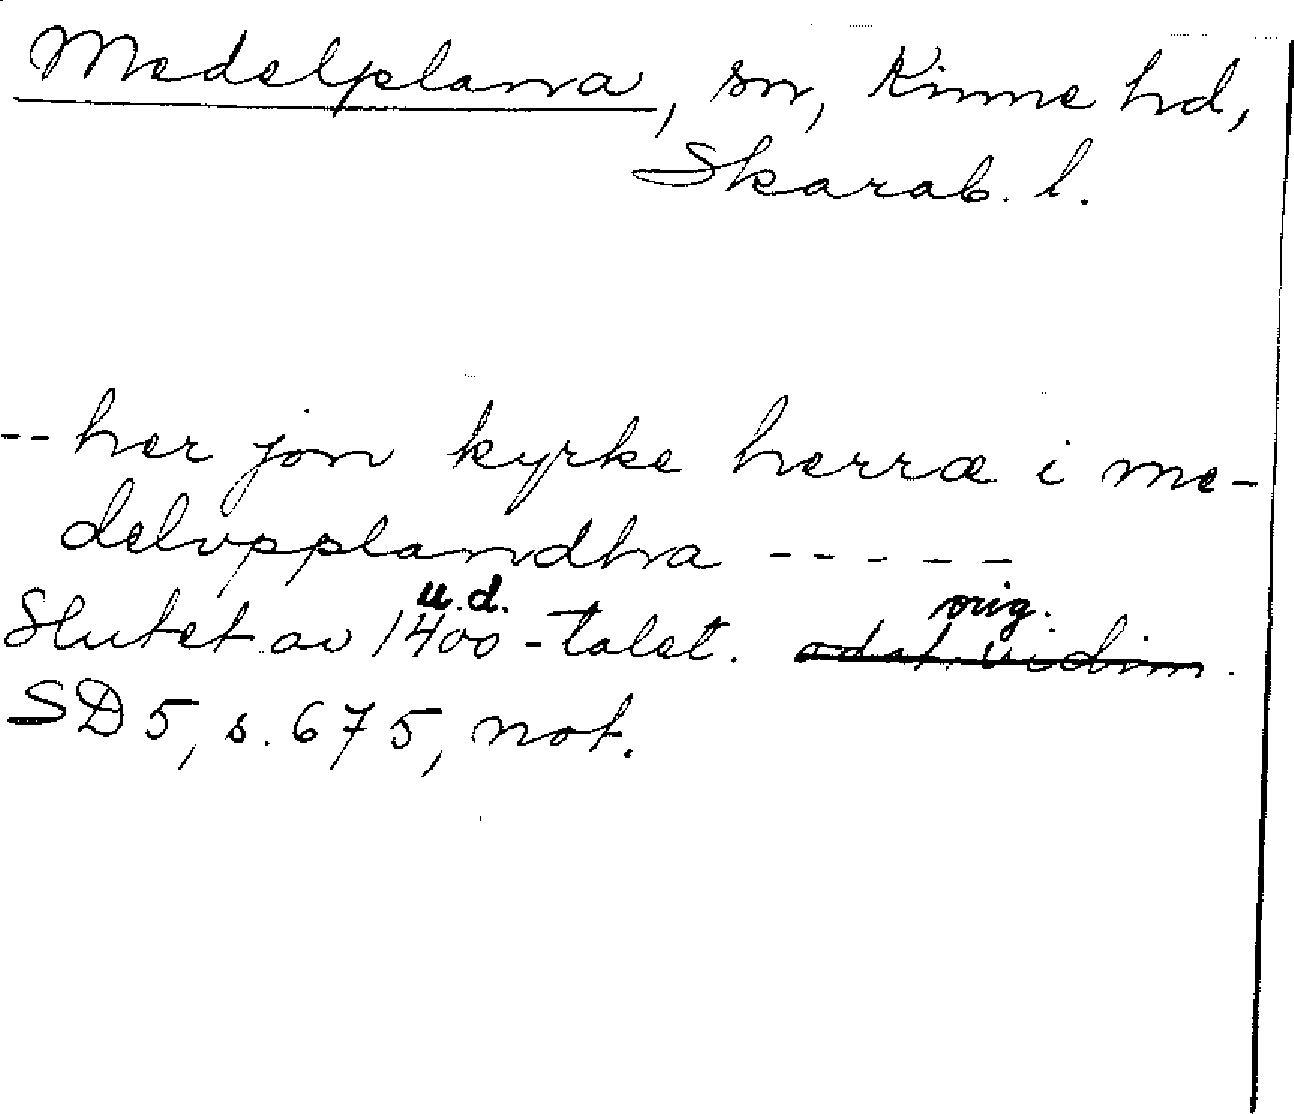 Medelplana, sn, Kinne hd,
Skarab. l.
-- her jon kyrke herræ i me-
delvpplandha -----
u.d. orig.
Slutet av 1400-talet. odat. vidim.
SD 5, s. 675, not.